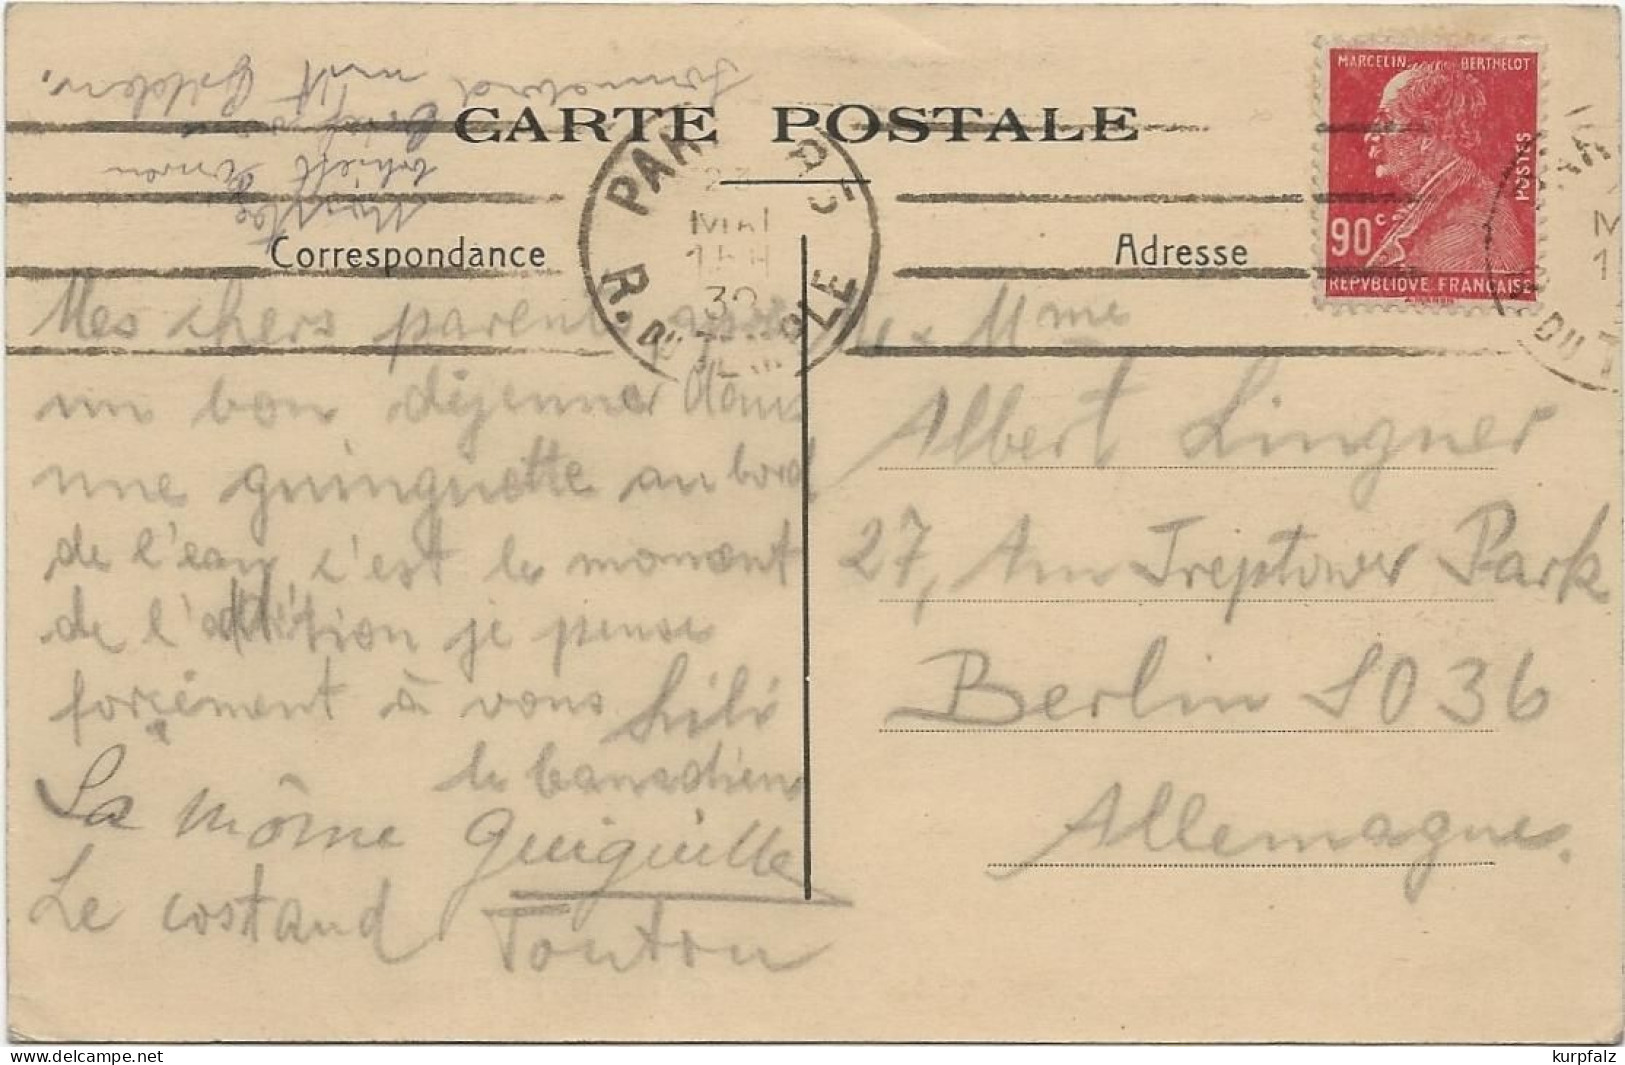 CARTE POSTALE
Correspondance
Adresse
MARCELIN BERTHELOT
POSTES
90c
REPVBLIQVE FRANÇAISE
PARIS R.
MAI
30
R. DU
Mes chers parents après
un bon déjeuner dans
une guinguette au bord
de l'eau c'est le moment
de l'addition je pense
forcément à vous Lili
le Canadien
La môme Guiguille
Le costaud Toutou
M. & Mme
Albert Lingner
27, Am Treptower Park
Berlin SO 36
Allemagne.
www.delcampe.net
kurpfalz